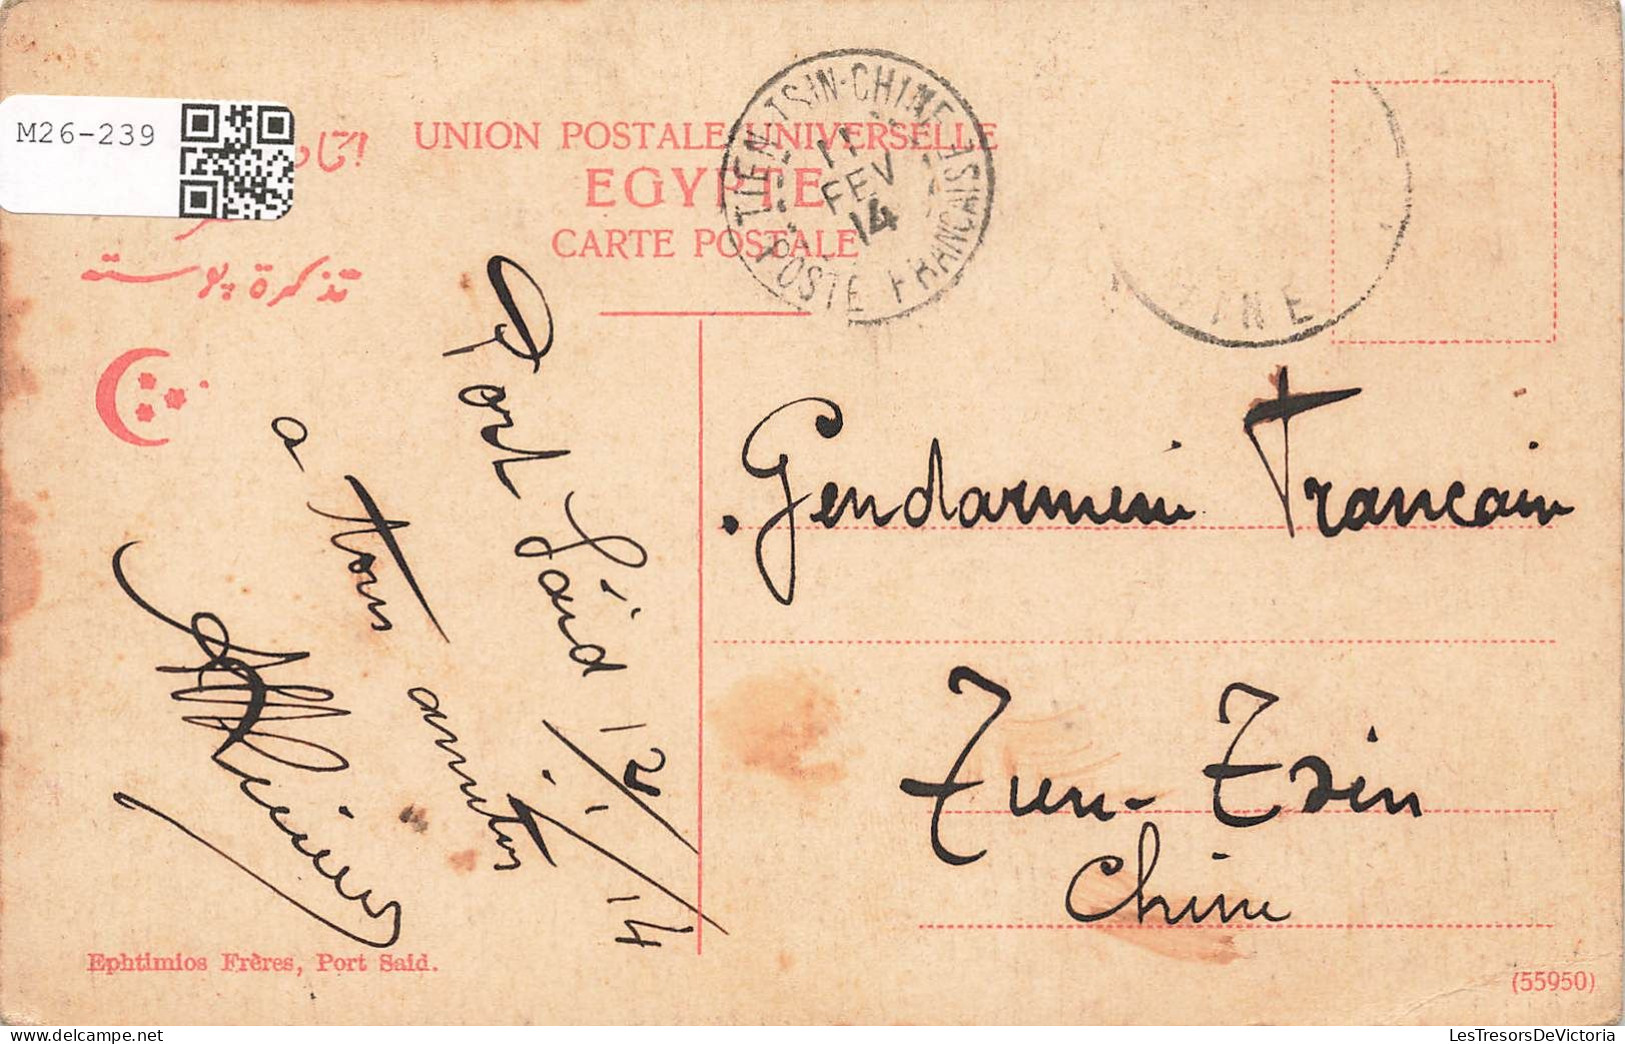 M26-239
UNION POSTALE UNIVERSELLE
EGYPTE
CARTE POSTALE
تذكرة پوسته
TIEN-TSIN-CHINE
11
FEV
14
POSTE FRANÇAISE
HINE
Port Saïd 12/1/14
a tous
amities
Gendarmerie Francaise
Tien-Tsin
Chine
Ephtimios Frères, Port Said.
(55950)
LesTresorsDeVictoria